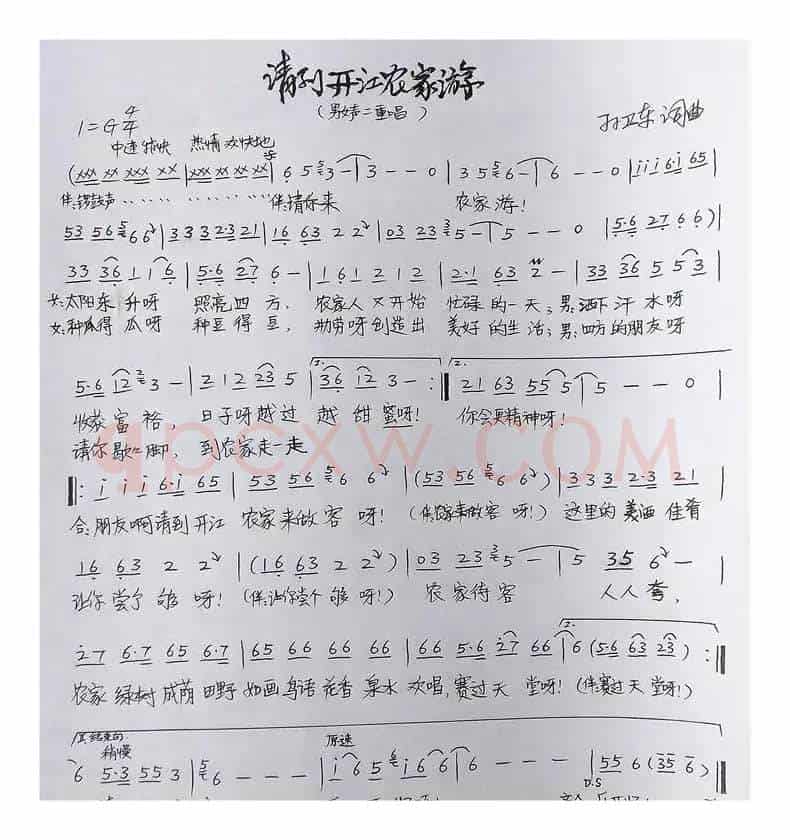 请到开江农家游
(男女声二重唱)
1=G 4/4
中速 稍快 热情 欢快地
孙卫东 词曲
(xxx xx xxx xx | xxx xx xx xx | 6 5 5 3 - | 3 - - 0 | 3 5 5 6 - | 6 - - 0 | i i i 6·i 65
伴:锣鼓声 ‥‥‥ 伴:请你来 农家游!
53 56 5 6 6 | 333 2·3 21 | 16 63 2 2 | 03 23 3 5 - | 5 - - 0 | 5·6 27 6 6) |
33 36 1 1 6 | 5·6 27 6 - | 1 6 1 2 1 2 | 2·1 63 2 - | 33 36 5 5 3 |
女:太阳东 升呀 照亮四 方, 农家人 又开始 忙碌 的一 天; 男:洒下 汗 水呀
女:种瓜得 瓜呀 种豆 得 豆, 勤劳呀创造出 美好 的生 活; 男:四方的朋友呀
5·6 12 2 3 - | 2 1 2 23 5 | 36 12 3 - :‖ 21 63 55 5 | 5 - - 0 |
收获 富 裕, 日子呀越过 越 甜 蜜呀! 你会更精神呀!
请你 歇歇脚, 到农家走一走
‖: i i i 6·i 65 | 53 56 5 6 6 | (53 56 5 6 6) | 333 2·3 21 |
合:朋友啊请到 开江 农家来做 客 呀! (伴:农家来做客 呀!) 这里的 美酒 佳肴
16 63 2 2 | (16 63 2 2) | 03 23 3 5 - | 5 35 6 - |
让你 尝个 够 呀! (伴:让你尝个 够 呀!) 农 家待 客 人人 夸,
27 6·7 65 6·7 | 65 66 66 66 | 66 5·6 27 66 | 6 (5·6 63 23) :‖
农家 绿树 成荫 田野 如画 鸟语 花香 泉水 欢唱,赛过 天 堂呀! (伴:赛过 天 堂呀!)
稍慢 原速
6 5·3 55 3 | 5 6 - - - | i 6 5 6 i 6 6 | 6 - - - | 55 6 (35 6) ‖
D.S
qpcxw.COM